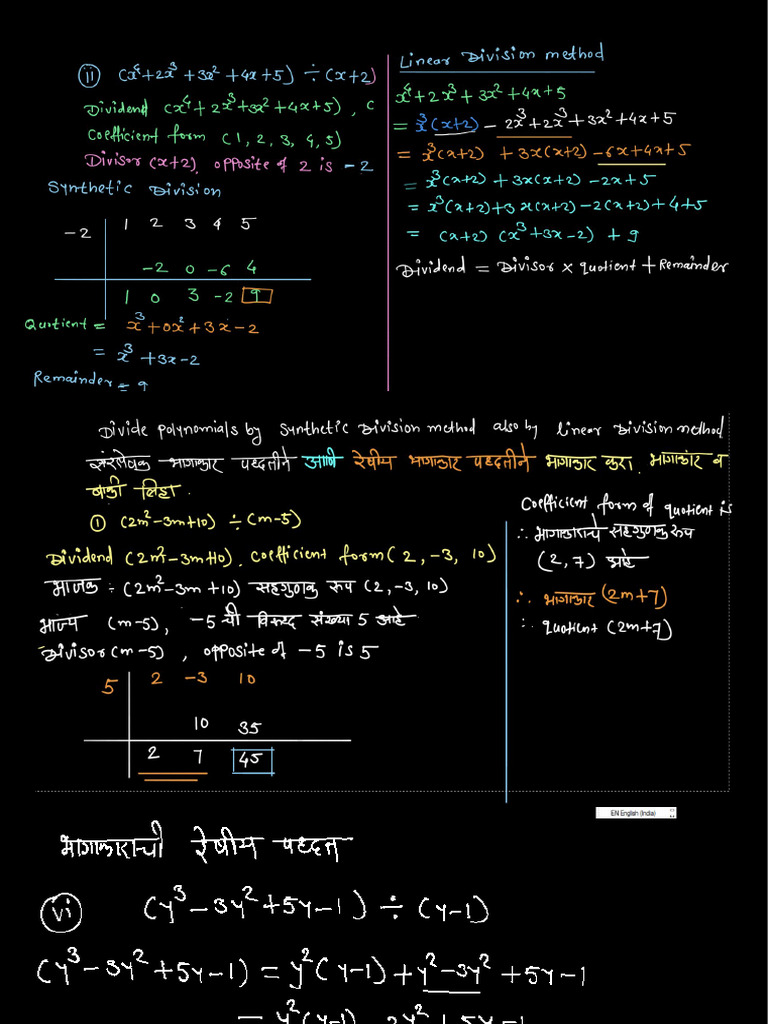 ii (x⁴+2x³+3x²+4x+5) ÷ (x+2)
Dividend (x⁴+2x³+3x²+4x+5), c
Coefficient form (1, 2, 3, 4, 5)
Divisor (x+2), opposite of 2 is -2
Synthetic Division
-2 | 1 2 3 4 5
-2 0 -6 4
1 0 3 -2 9
Quotient = x³+0x²+3x-2
= x³+3x-2
Remainder = 9
Linear Division method
x⁴+2x³+3x²+4x+5
= x³(x+2) - 2x³+2x³+3x²+4x+5
= x³(x+2) +3x(x+2) -6x+4x+5
= x³(x+2) + 3x(x+2) -2x+5
= x³(x+2)+3x(x+2)-2(x+2)+4+5
= (x+2) (x³+3x-2) + 9
Dividend = Divisor × quotient + Remainder
Divide polynomials by synthetic Division method also by linear Division method
संश्लेषक भागाकार पद्धतीने आणि रेषीय भागाकार पद्धतीने भागाकार करा. भागाकार व
बाकी लिहा.
① (2m²-3m+10) ÷ (m-5)
Dividend (2m²-3m+10). coefficient form (2, -3, 10)
भाजक : (2m²-3m+10) सहगुणक रूप (2, -3, 10)
भाज्य (m-5), -5 ची विरुद्ध संख्या 5 आहे
Divisor (m-5), opposite of -5 is 5
5 | 2 -3 10
10 35
2 7 45
Coefficient form of quotient is
∴ भागाकाराचे सहगुणक रूप
(2, 7) आहे
∴ भागाकार (2m+7)
∴ quotient (2m+7)
EN English (India)
भागाकाराची रेषीय पद्धत
vi (y³-3y²+5y-1) ÷ (y-1)
(y³-3y²+5y-1) = y²(y-1)+y²-3y²+5y-1
= y²(y-1) - 2y²+5y-1